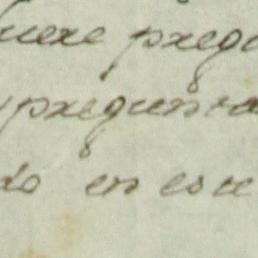 uere pregu
preguenta
do en este